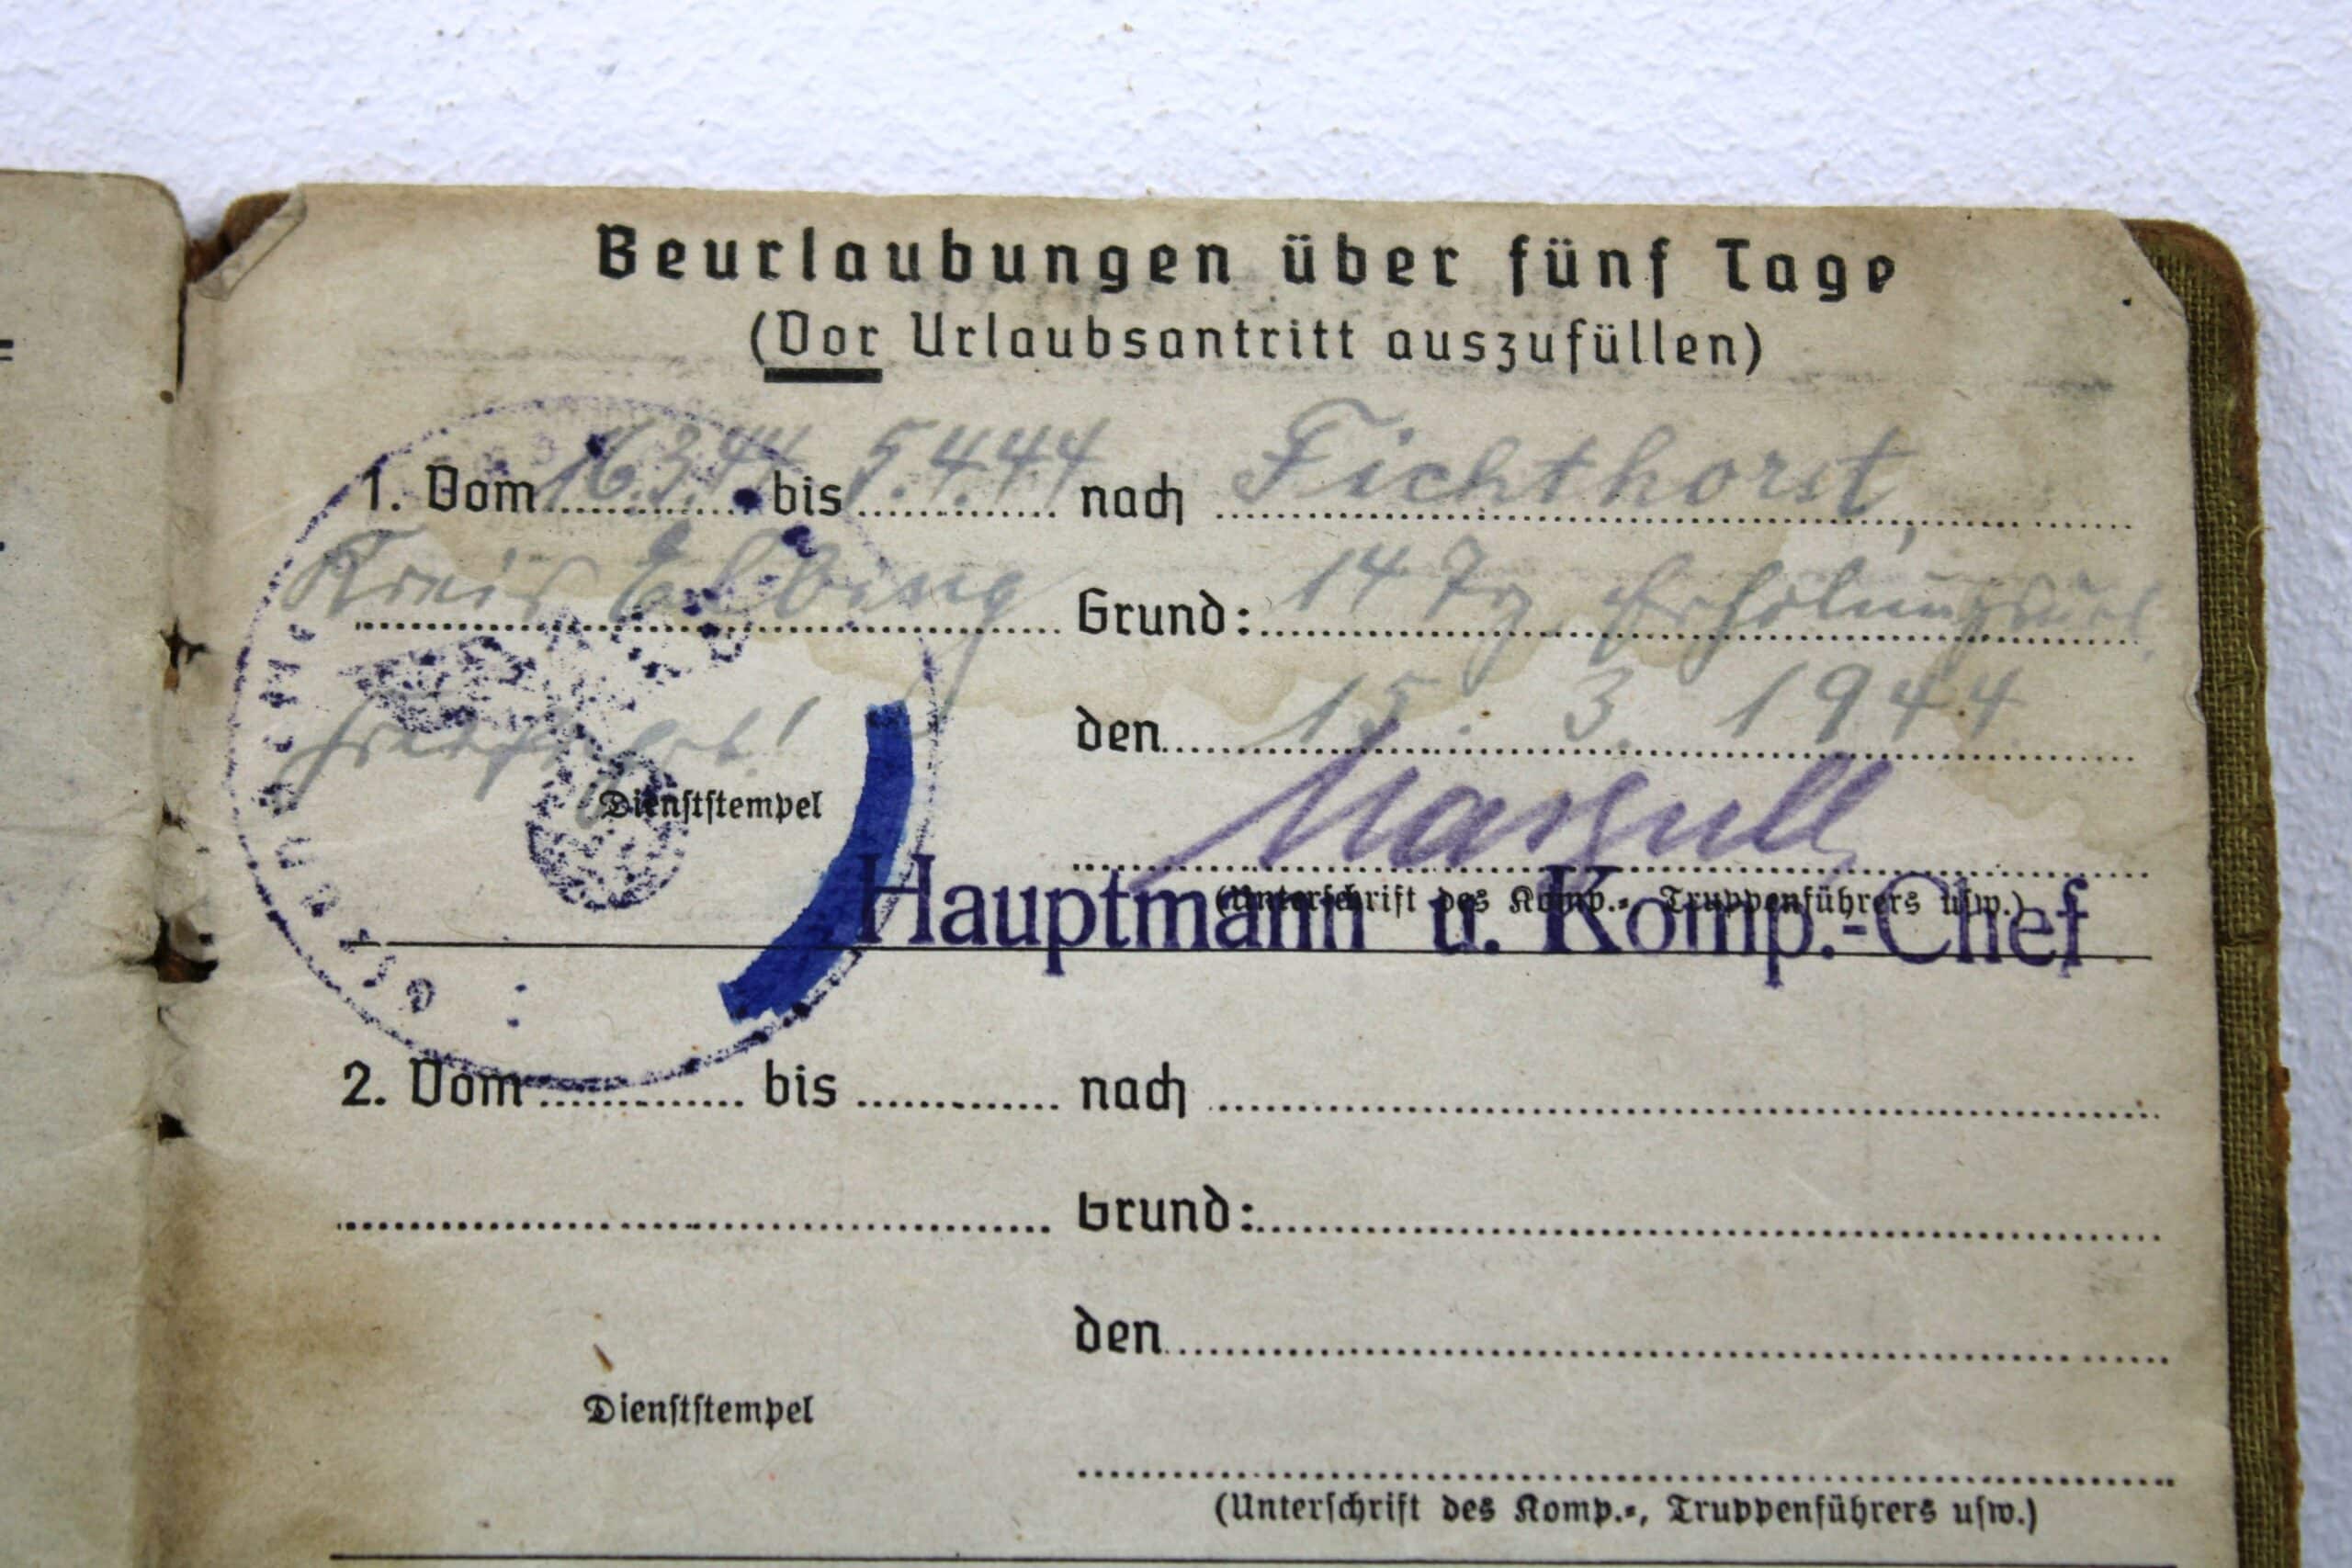 Beurlaubungen über fünf Tage
(Vor Urlaubsantritt auszufüllen)
1. Vom 16.3.44 bis 5.4.44 nach Fichthorst,
Kreis Elbing Grund: 14 Tg. Erholungsurl.
den 15. 3. 1944
Dienſtſtempel
Margull
(Unterſchrift des Komp.-, Truppenführers uſw.)
Hauptmann u. Komp.-Chef
2. Vom bis nach
Grund:
den
Dienſtſtempel
(Unterſchrift des Komp.-, Truppenführers uſw.)